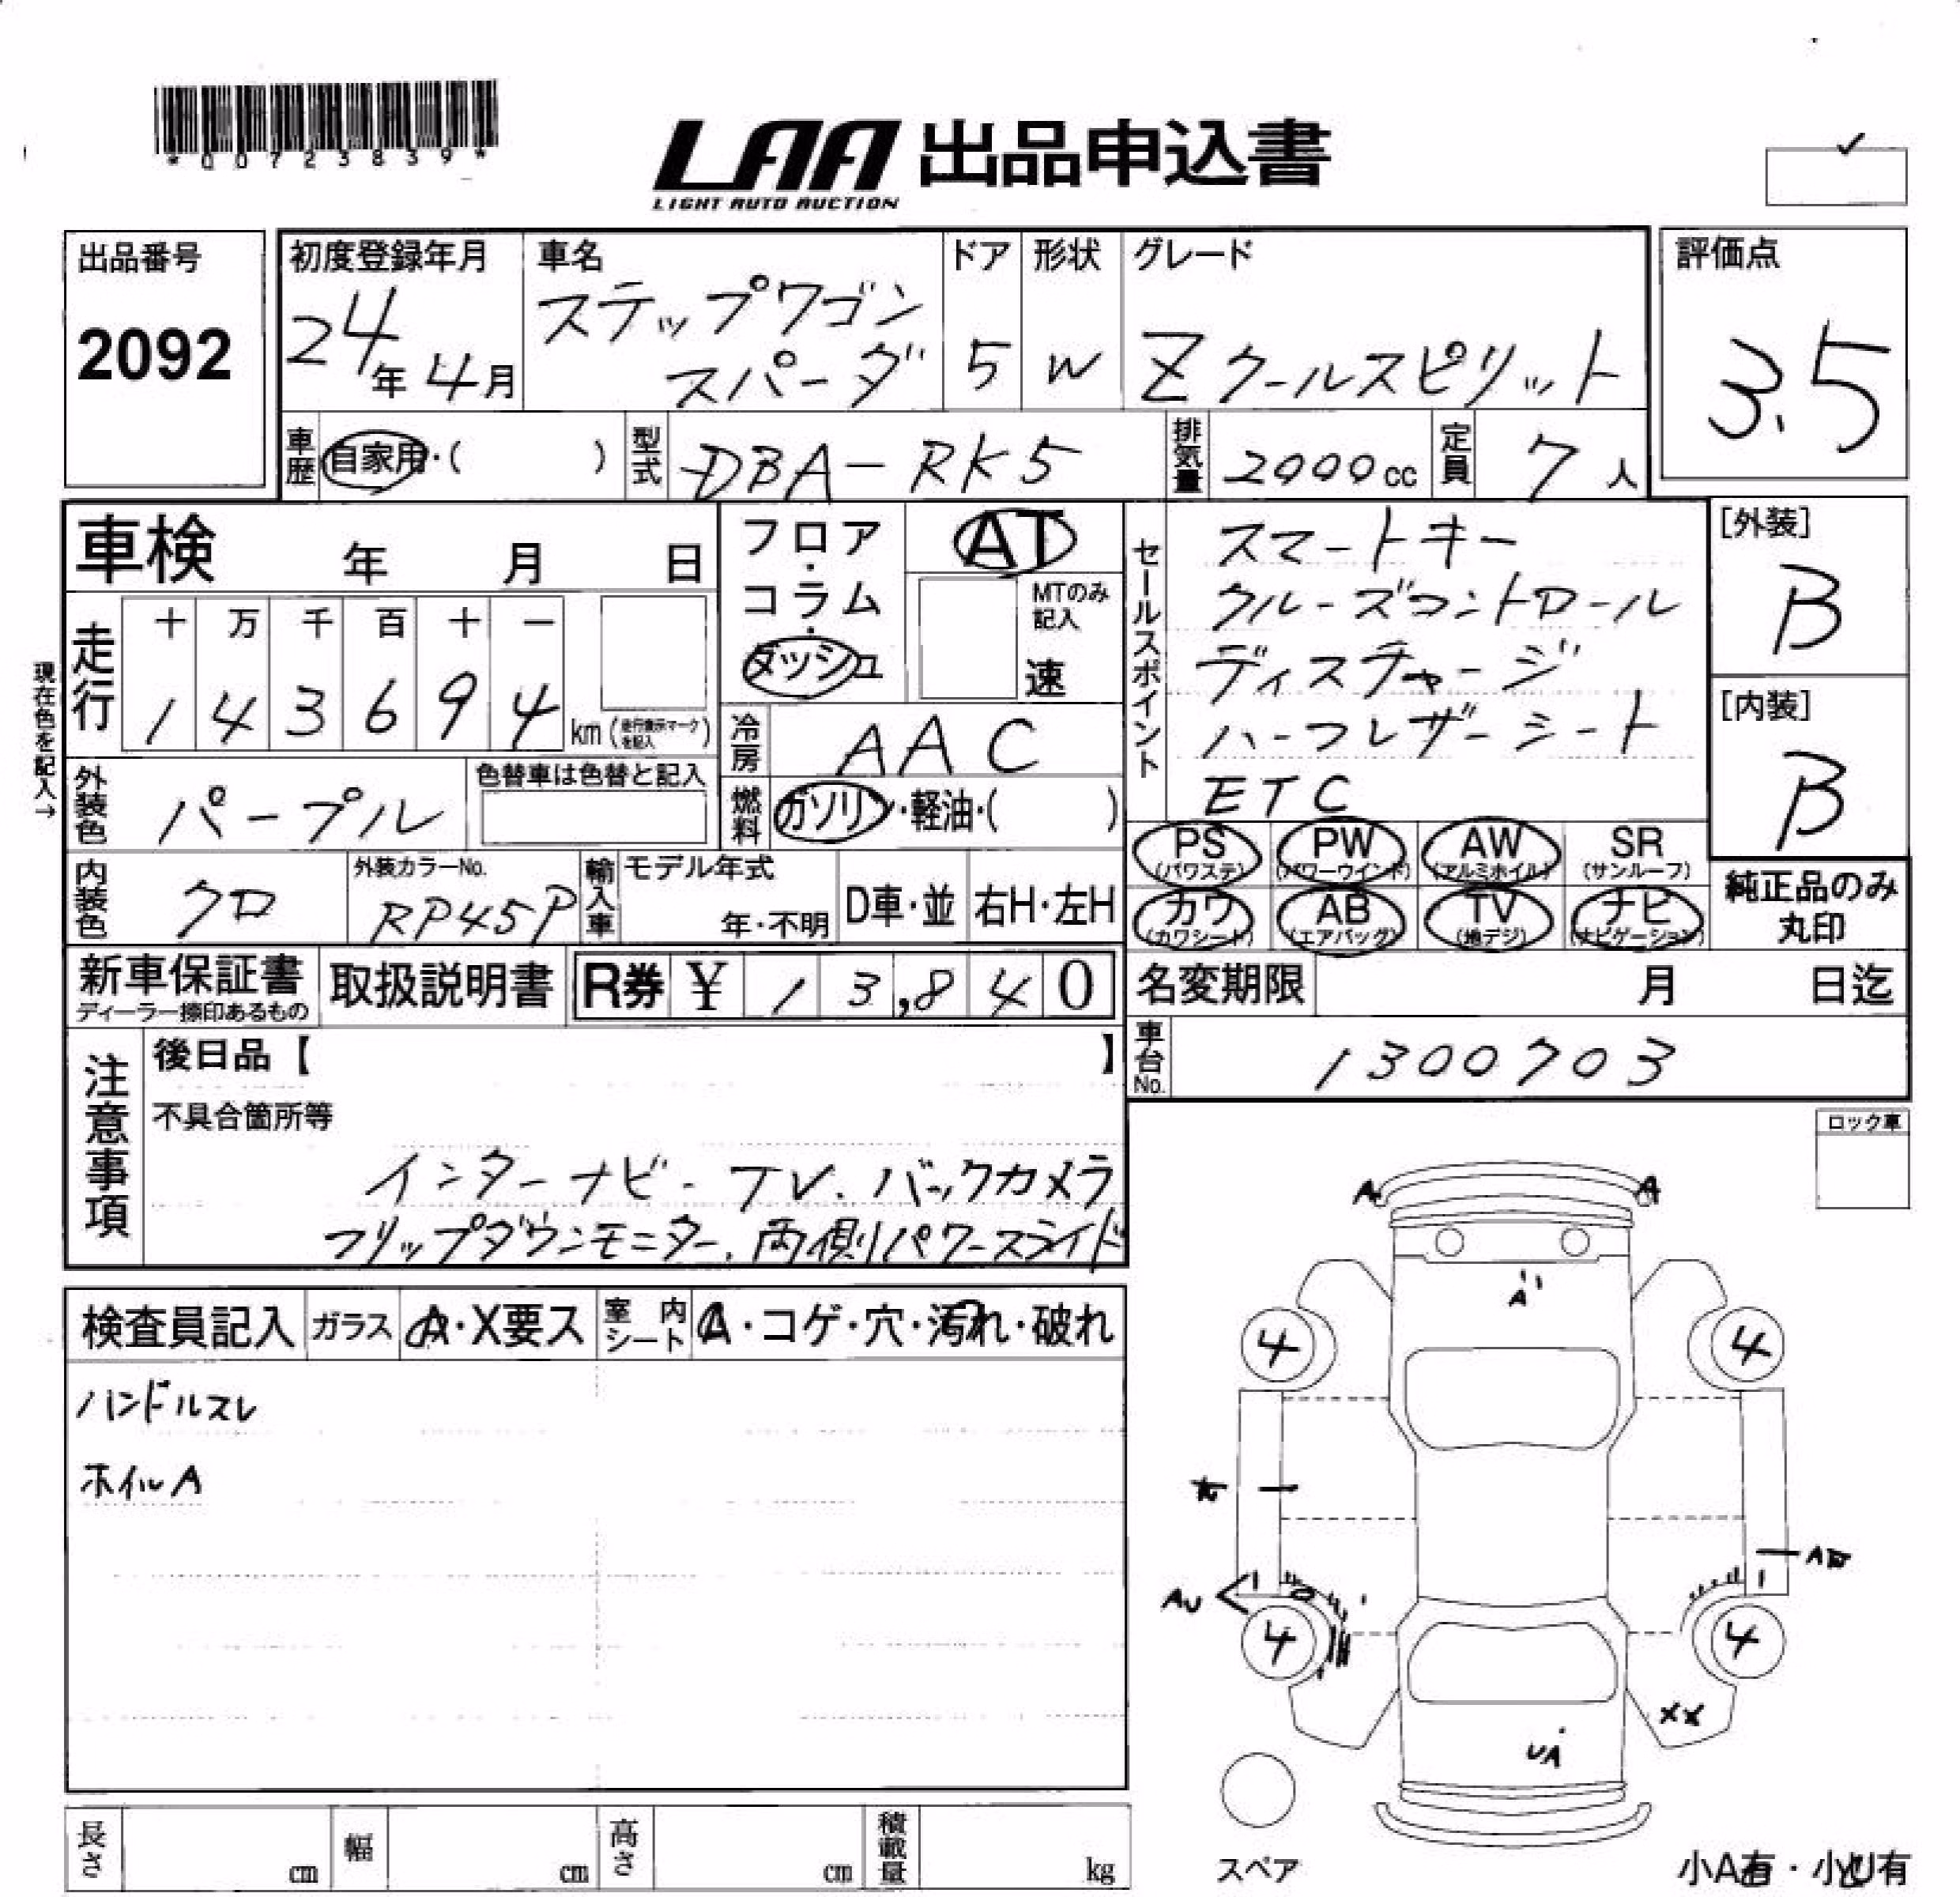 *00723839*
LAA 出品申込書
LIGHT AUTO AUCTION
出品番号
2092
初度登録年月
24年 4月
車名
ステップワゴン
スパーダ
ドア
5
形状
W
グレード
Zクールスピリット
評価点
3.5
車歴
自家用・( )
型式
DBA-RK5
排気量
2000cc
定員
7人
車検 年 月 日
走行
十 万 千 百 十 一
1 4 3 6 9 4 km
現在色を記入→
フロア・コラム・ダッシュ
AT
MTのみ記入
速
冷房
AAC
燃料
ガソリン・軽油・( )
外装色
パープル
色替車は色替と記入
内装色
クロ
外装カラーNo.
RP45P
輸入車
モデル年式
年・不明
D車・並
右H・左H
セールスポイント
スマートキー
クルーズコントロール
ディスチャージ
ハーフレザーシート
ETC
[外装]
B
[内装]
B
PS (パワステ)
PW (パワーウインド)
AW (アルミホイル)
SR (サンルーフ)
カワ (カワシート)
AB (エアバッグ)
TV (地デジ)
ナビ (ナビゲーション)
純正品のみ
丸印
新車保証書
ディーラー捺印あるもの
取扱説明書
R券 ¥ 13,840
名変期限 月 日迄
車台No.
1300703
注意事項
後日品【 】
不具合箇所等
インターナビ・TV.バックカメラ
フリップダウンモニター.両側パワースライド
ロック車
検査員記入
ガラス
A・X要ス
室内シート
A・コゲ・穴・汚れ・破れ
ハンドルスレ
ホイルA
A
A
A
4
4
AU
4
4
XX
UA
スペア
小A有・小U有
長さ cm
幅 cm
高さ cm
積載量 kg